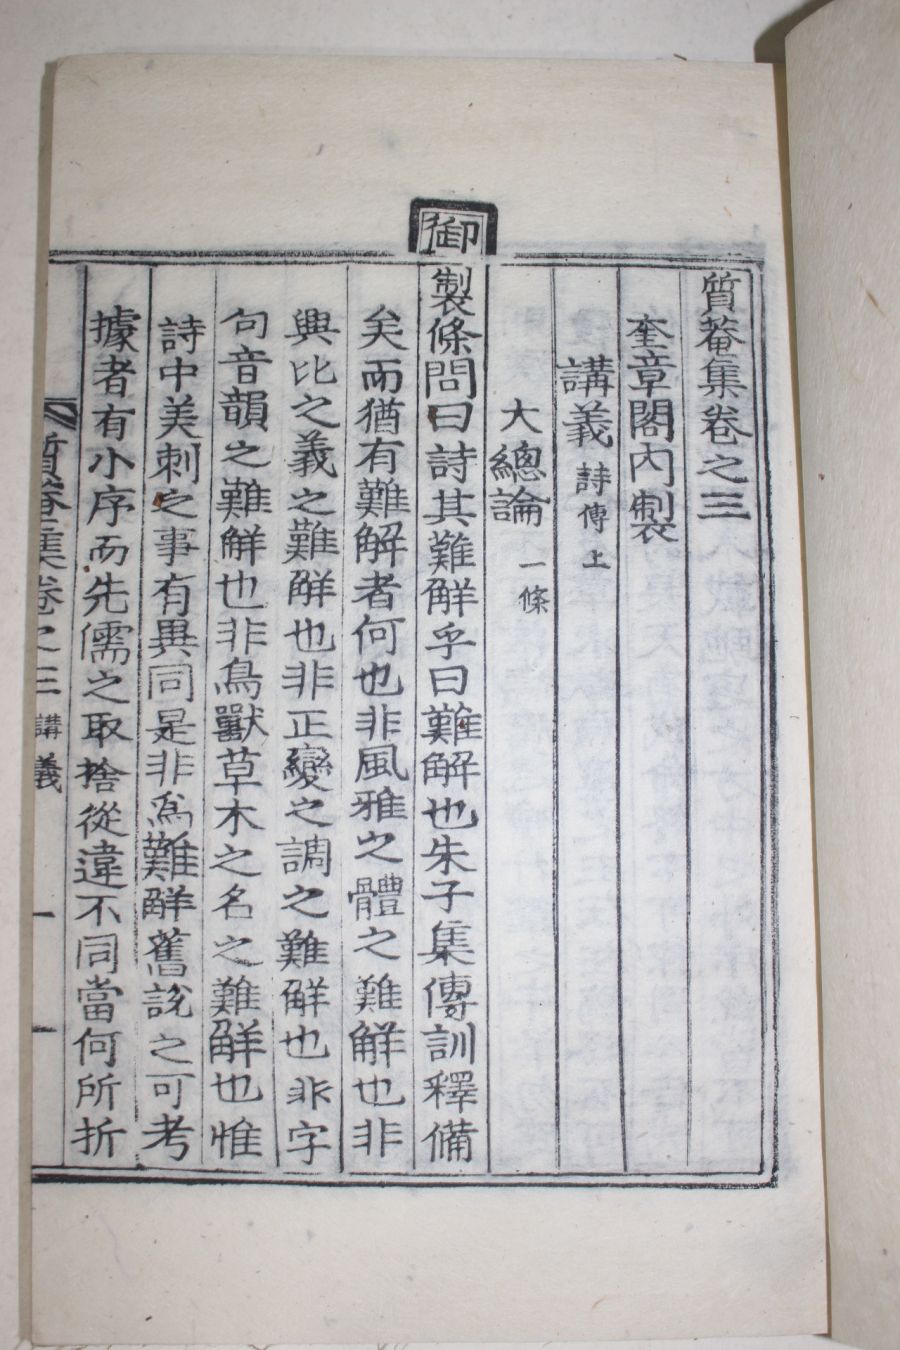 質菴集卷之三
奎章閣內製
講義 詩傳上
大總論 一條
御製條問曰詩其難解乎曰難解也朱子集傳訓釋備
矣而猶有難解者何也非風雅之體之難解也非
興比之義之難解也非正變之調之難解也非字
句音韻之難解也非鳥獸草木之名之難解也惟
詩中美刺之事有異同是非爲難解舊說之可考
據者有小序而先儒之取捨從違不同當何所折
質菴集卷之三 講義 一